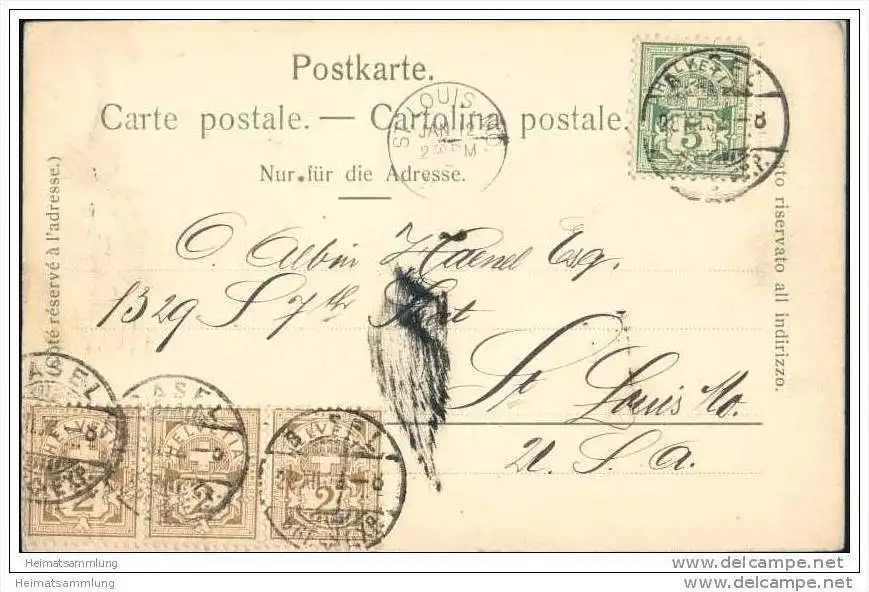 Postkarte.
Carte postale. — Cartolina postale.
Nur für die Adresse.
Côté réservé à l'adresse.)
riservato all indirizzo.
ST. LOUIS, MO.
JAN 12
2 M
HELVETIA
5
BASEL
O. Albin Haenel Esq.
1329 S 7th
St Louis Mo.
U. S. A.
BASEL
HELVETIA
2
BASEL
HELVETIA
2
BASEL
HELVETIA
2
Heimatsammlung
www.delcampe.net
Heimatsammlung
www.delcampe.net